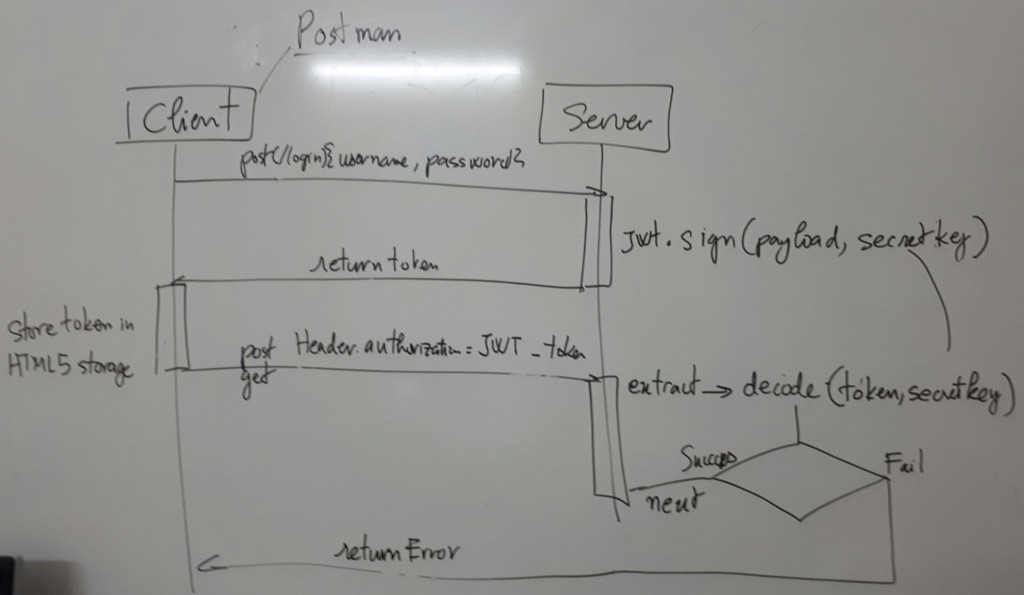 Postman
Client
Server
post(/login){username, password}
Jwt.sign(payload, secretkey)
return token
Store token in
HTML5 storage
post
get
Header.authorization = JWT_token
extract → decode (token, secretkey)
Success
Fail
next
return Error